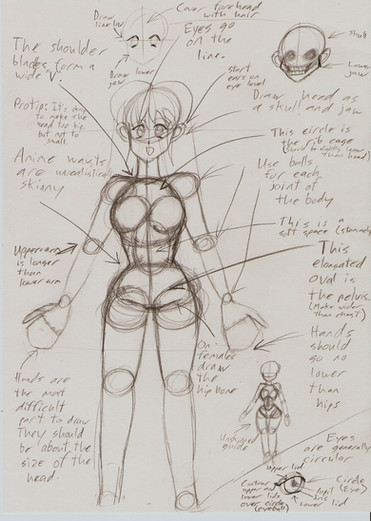 Draw
line low
Cover forehead
with hair
Eyes go
on the
line.
Draw lower
jaw
Start
ears on
eye level
Skull
Lower
jaw
Draw head as
a skull and jaw
The shoulder
blades form a
wide V.
Protip: It's
to make
the head too big
but not to
small.
Anime waists
are unrealistically
skinny
This circle is
the rib cage
Use balls
for each
joint of
the body
This is a
soft space
Upper arm
is longer
than
lower arm
This
elongated
oval is
the pelvis.
(Make wider
than chest)
Hands
should
go no
lower
than
hips
On
females
draw
the
hip bone
Hands are
the most
difficult
part to draw
They should
be about the
size of the
head.
guide
Eyes
are generally
circular
upper lid
upper and
lower lids
over circle
(eyeball)
Circle
(Eye)
Pupil
Iris
Lower lid